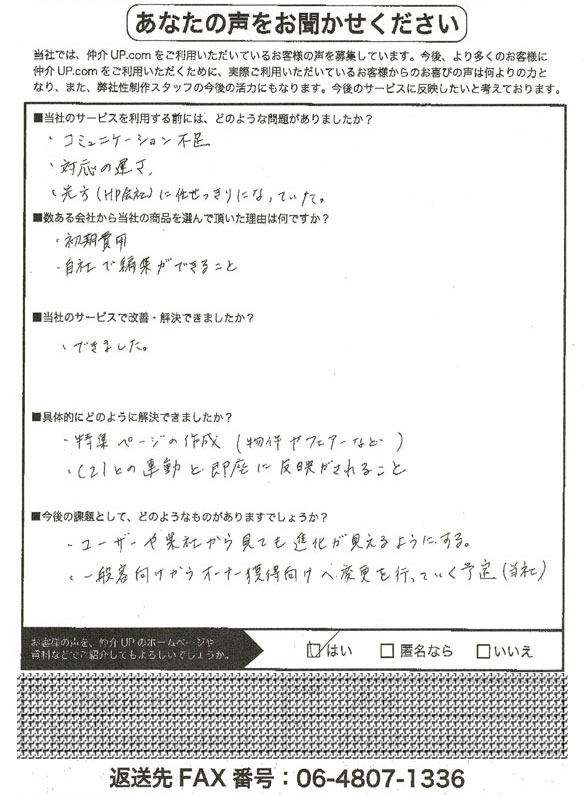 あなたの声をお聞かせください
当社では、仲介UP.comをご利用いただいているお客様の声を募集しています。今後、より多くのお客様に
仲介UP.comをご利用いただくために、実際ご利用いただいているお客様からのお喜びの声は何よりの力と
なり、また、弊社性制作スタッフの今後の活力にもなります。今後のサービスに反映したいと考えております。
■当社のサービスを利用する前には、どのような問題がありましたか？
・コミュニケーション不足
・対応の遅さ、
・先方(HP会社)に任せっきりになっていた。
■数ある会社から当社の商品を選んで頂いた理由は何ですか？
・初期費用
・自社で編集ができること
■当社のサービスで改善・解決できましたか？
・できました。
■具体的にどのように解決できましたか？
・特集ページの作成(物件やフェアーなど)
・C21との連動と即座に反映がされること
■今後の課題として、どのようなものがありますでしょうか？
・ユーザーや業社から見ても進化が見えるようにする。
・一般客向けからオーナー獲得向けへ変更を行っていく予定(当社)
お客様の声を、仲介UPのホームページや
資料などでご紹介してもよろしいでしょうか。
はい 匿名なら いいえ
返送先FAX番号：06-4807-1336